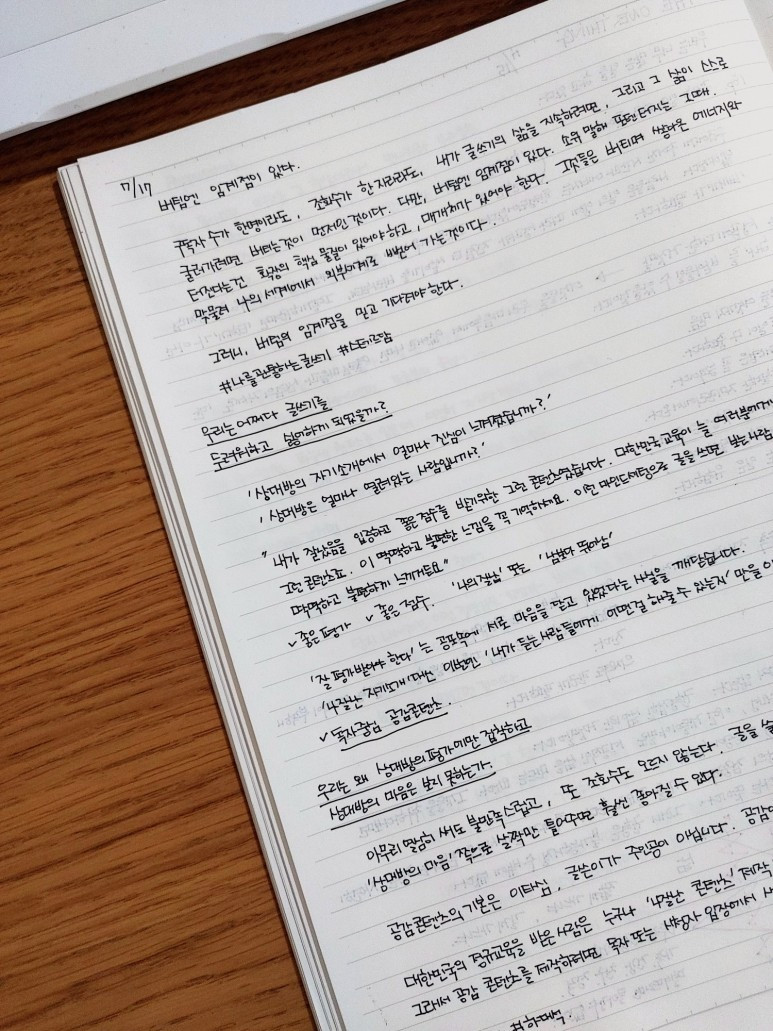 7/17
버팀엔 임계점이 있다.
구독자 수가 한명이라도, 조회수가 한 자리라도, 내가 글쓰기의 삶을 지속하려면, 그리고 그 삶이 스스로
굴러가려면 버티는것이 먼저인 것이다. 다만, 버팀엔 임계점이 있다. 소위 말해 포텐 터지는 그때.
터진다는건 확장의 핵심 물질이 있어야하고, 매개체가 있어야 한다. 그것들은 버티며 쌓아온 에너지와
맞물려 나의 세계에서 외부세계로 뻗어 가는것이다.
그러니, 버팀의 임계점을 믿고 기다려야한다.
#나를관통하는글쓰기 #스테르담
우리는어쩌다 글쓰기를
두려워하고 싫어하게 되었을까?
'상대방의 자기소개에서 얼마나 진심이 느껴졌습니까?'
'상대방은 얼마나 열려있는 사람입니까?'
"내가 잘났음을 입증하고 좋은 점수를 받기위한 그런 콘텐츠였습니다. 대한민국 교육이 늘 여러분에게
그런 콘텐츠요. 이 딱딱하고 불편한 느낌을 꼭 기억하세요. 이런 마인드세팅으로 글을 쓰면 보는사람
딱딱하고 불편하게 느끼거든요"
✓좋은평가 ✓좋은 점수. '나의잘남' 또는 '남보다 뛰어남'
'잘 평가받아야 한다'는 공포속에 서로 마음을 닫고 있었다는 사실을 깨달습니다.
'나잘난 자기소개'대신 이번엔 '내가 듣는사람들에게 어떤걸 해줄 수 있는지' 만을
✓독자중심 공감콘텐츠.
우리는 왜 상대방의평가에만 집착하고
상대방의 마음은 보지 못하는가.
아무리 열심히 써도 불만족스럽고, 또 조회수도 오르지 않는다. 글을
'상대방의 마음'쪽으로 살짝만 틀어주면 훨씬 좋아질 수 있다.
공감콘텐츠의 기본은 이타심, 글쓴이가 주인공이 아닙니다.
대한민국의 정규교육을 받은사람은 누구나 '나잘난 콘텐츠' 제작
그래서 공감 콘텐츠를 제작하려면 독자 또는 시청자 입장에서